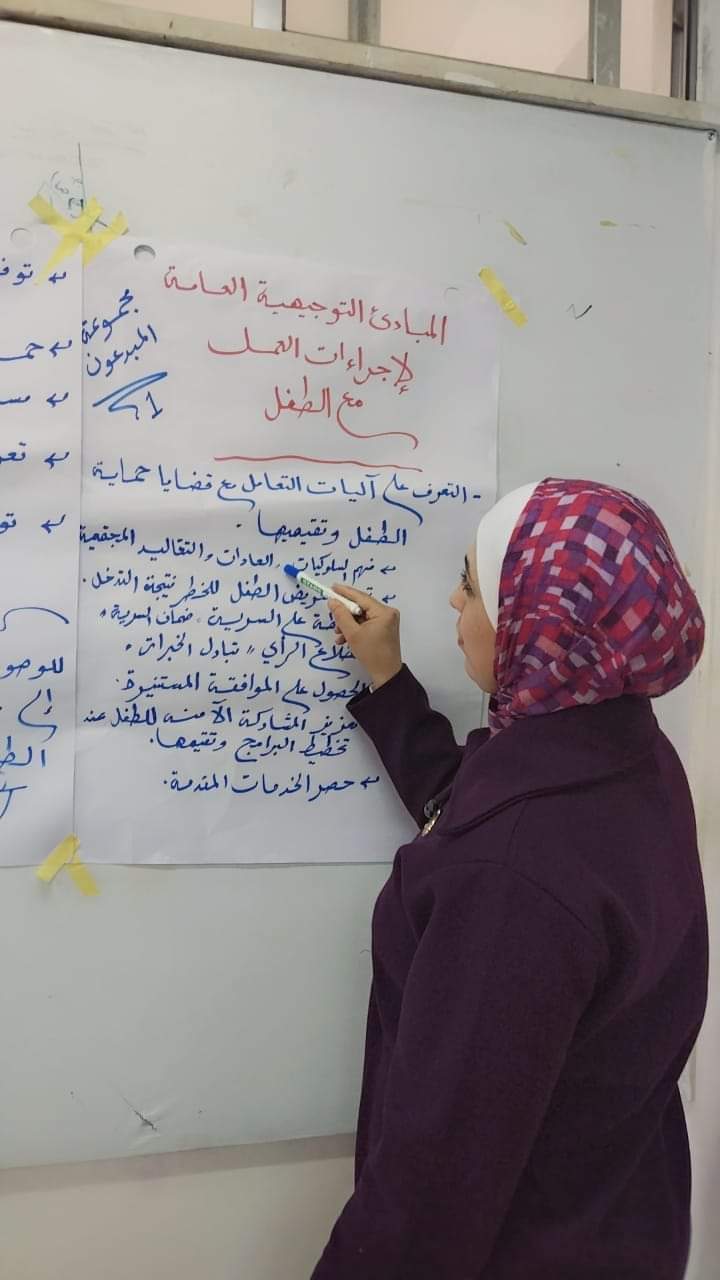 المبادئ التوجيهية العامة
لإجراءات العمل
مع الطفل
مجموعة
المبدعون
- التعرف على آليات التعامل مع قضايا حماية
الطفل وتقييمها.
فهم السلوكيات، العادات والتقاليد المجتمعية
الطفل للخطر نتيجة التدخل.
على السرية "ضمان السرية"
الرأي "تبادل الخبرات"
الحصول على الموافقة المستنيرة.
تعزيز المشاركة الآمنه للطفل عند
تخطيط البرامج وتقيمها.
حصر الخدمات المقدمة.
للوصو
إلى